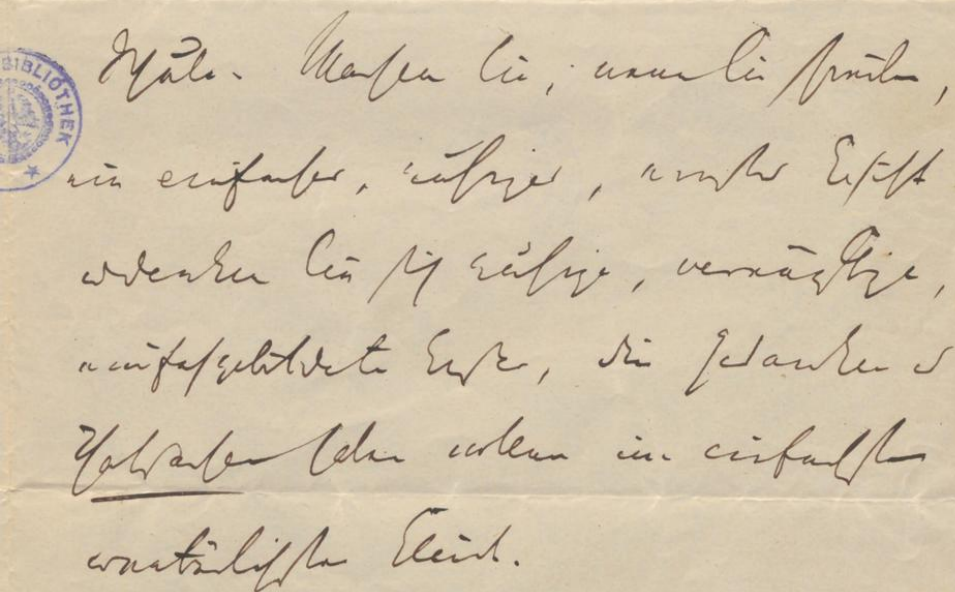 BIBLIOTHEK
Machen Sie, wenn Sie schreiben,
ein einfaches, ruhiges, ernstes Gesicht
u denken Sie sich ruhige, vernünftige,
einfachgebildete Leser, die Gedanken u
Thatsachen sehen wollen im einfachsten
u natürlichsten Kleid.